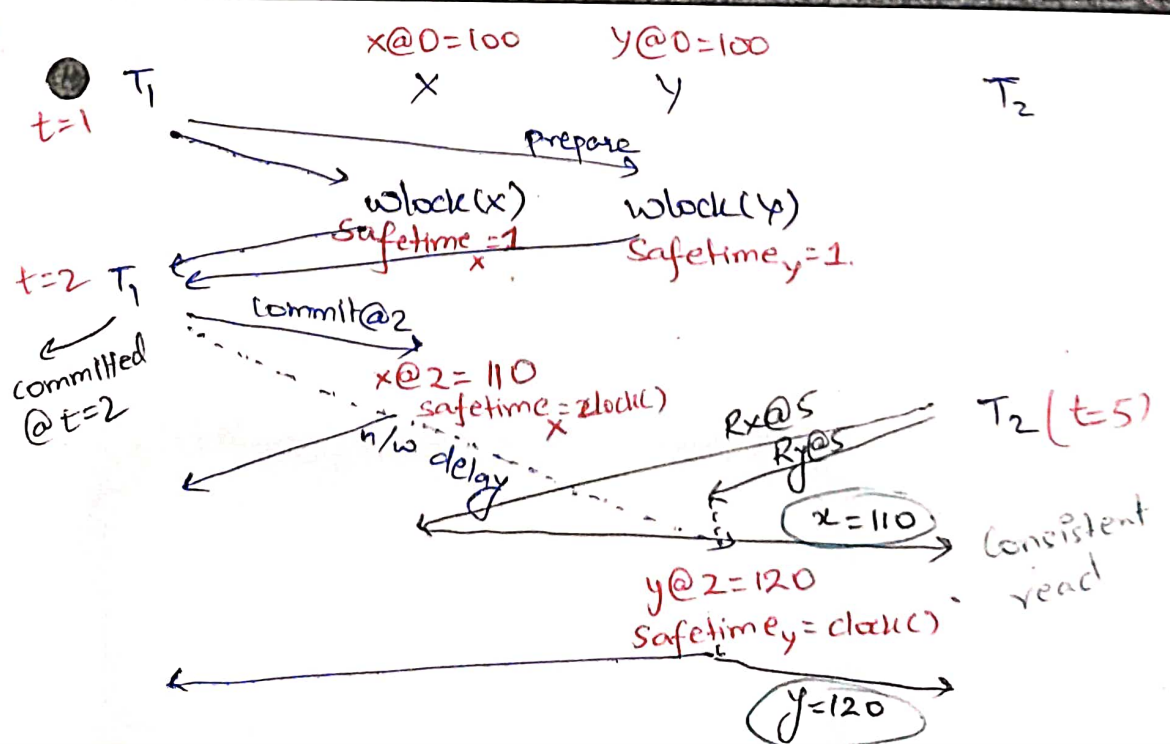 x@0=100 y@0=100
T1 X Y T2
t=1
prepare
wlock(x) wlock(y)
Safetime x =1 Safetime y =1.
t=2 T1
commit@2
committed
@t=2
x@2=110
safetime x = clock()
n/w delay
Rx@5
T2 (t=5)
Ry@5
x=110
Consistent
read
y@2=120
Safetime y = clock()
y=120